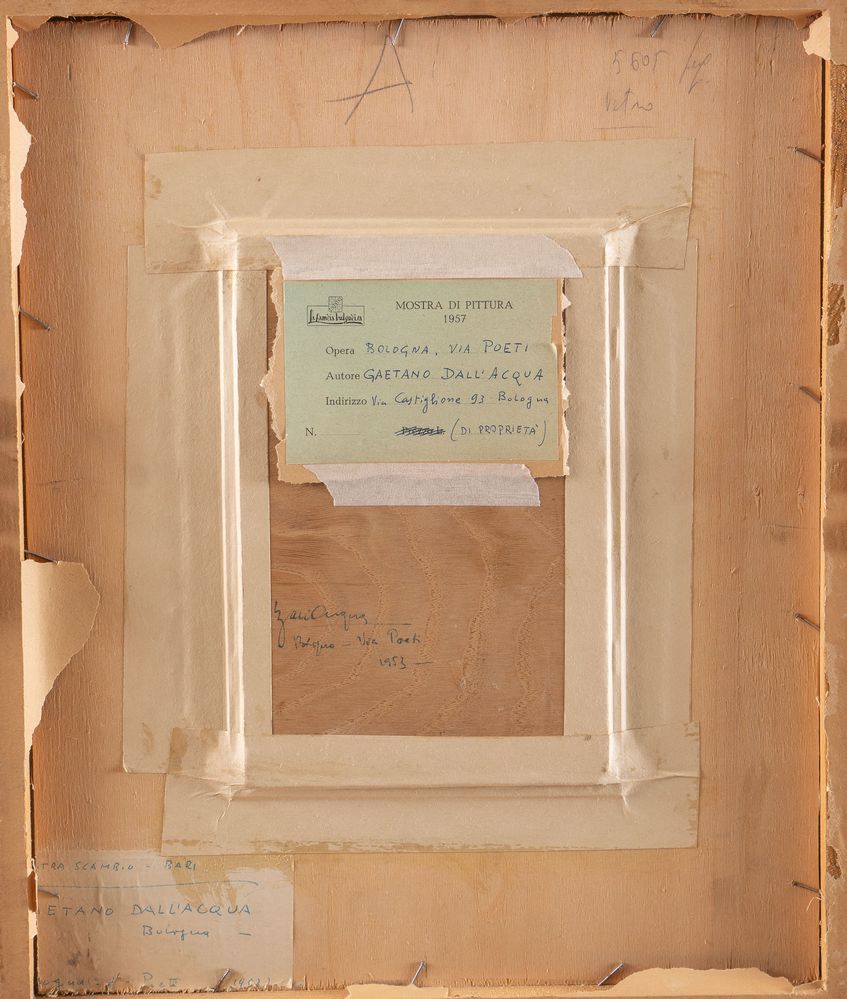 A
5605
Vetro
la famèia bulgnèisa
MOSTRA DI PITTURA
1957
Opera BOLOGNA, VIA POETI
Autore GAETANO DALL'ACQUA
Indirizzo Via Castiglione 93 Bologna
N. (DI PROPRIETÀ)
Bologna - Via Poeti
1953 -
TRA SCAMBIO - BARI
ETANO DALL'ACQUA
Bologna -